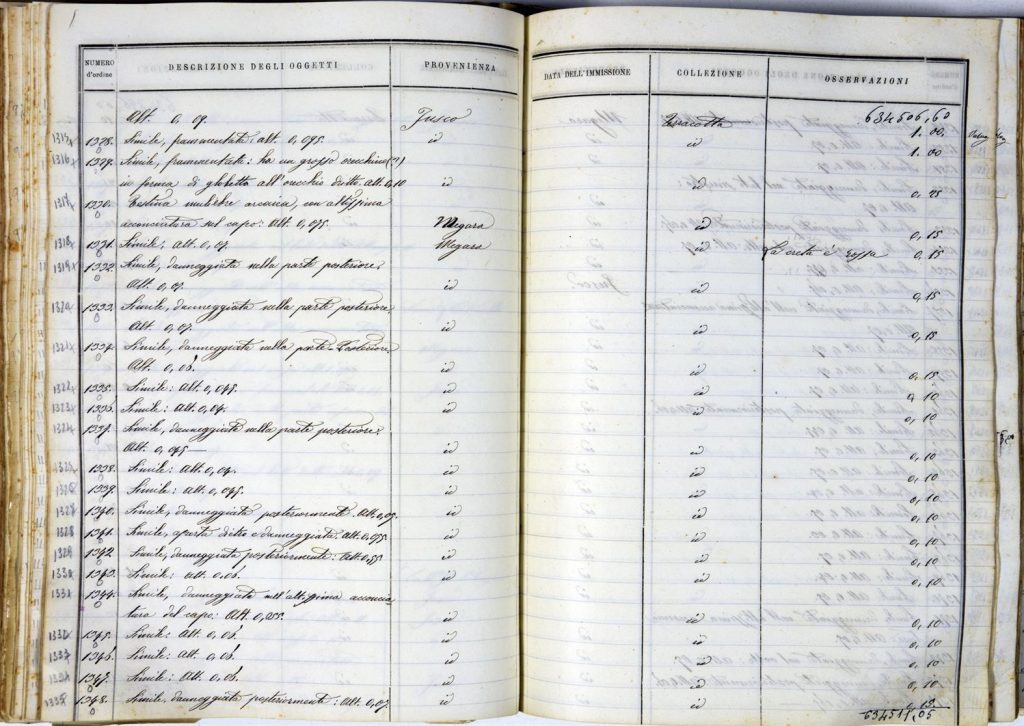 NUMERO d'ordine DESCRIZIONE DEGLI OGGETTI PROVENIENZA DATA DELL'IMMISSIONE COLLEZIONE OSSERVAZIONI
Alt. 0,09. Fusco Terracotta 634506,60
1315 1328. Simile, frammentata: alt. 0,095. id id 1.00
1316 1329. Simile, frammentata: ha un grosso orecchino(?) 1.00
in forma di globetto all'orecchio dritto. Alt. 0,10 id id
1317 1330. Testina muliebre arcaica, con altissima 0,25
acconciatura sul capo: Alt. 0,075. Megara id
1318 1331. Simile: Alt. 0,07. Megara id La creta è rossa 0,15
1319 1332. Simile, danneggiata nella parte posteriore: 0,15
Alt. 0,07. id id
1320 1333. Simile, danneggiata nella parte posteriore. 0,15
Alt. 0,07. id id
1321 1334. Simile, danneggiata nella parte posteriore 0,15
Alt. 0,06. id id 0,15
1322 1335. Simile: Alt. 0,045. id id 0,10
1323 1336. Simile: Alt. 0,04. id id 0,10
1324 1337. Simile, danneggiata nella parte posteriore:
Alt. 0,045 id id 0,10
1325 1338. Simile: Alt. 0,04. id id 0,10
1326 1339. Simile: Alt. 0,045. id id 0,10
1327 1340. Simile, danneggiata posteriormente: Alt. 0,05. id id 0,10
1328 1341. Simile, aperta dietro e danneggiata: Alt. 0,055 id id 0,10
1329 1342. Simile, danneggiata posteriormente: Alt. 0,55 id id 0,10
1330 1343. Simile: Alt. 0,06. id id 0,10
1331 1344. Simile, danneggiata nell'altissima acconcia
tura del capo: Alt. 0,055. id id 0,10
1332 1345. Simile: Alt. 0,06 id id 0,10
1333 1346. Simile: Alt. 0,06 id id 0,10
1334 1347. Simile: Alt. 0,06 id id 0,10
1335 1348. Simile, danneggiata posteriormente: Alt. 0,07. id id 0,15
634511,05